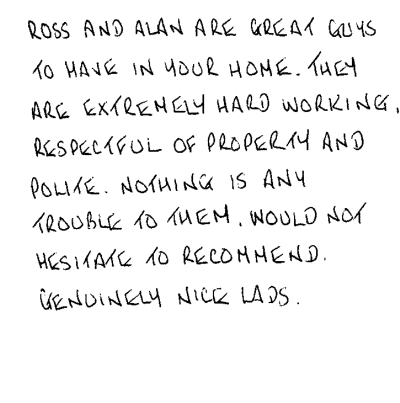 ROSS AND ALAN ARE GREAT GUYS
TO HAVE IN YOUR HOME. THEY
ARE EXTREMELY HARD WORKING,
RESPECTFUL OF PROPERTY AND
POLITE. NOTHING IS ANY
TROUBLE TO THEM. WOULD NOT
HESITATE TO RECOMMEND.
GENUINELY NICE LADS.